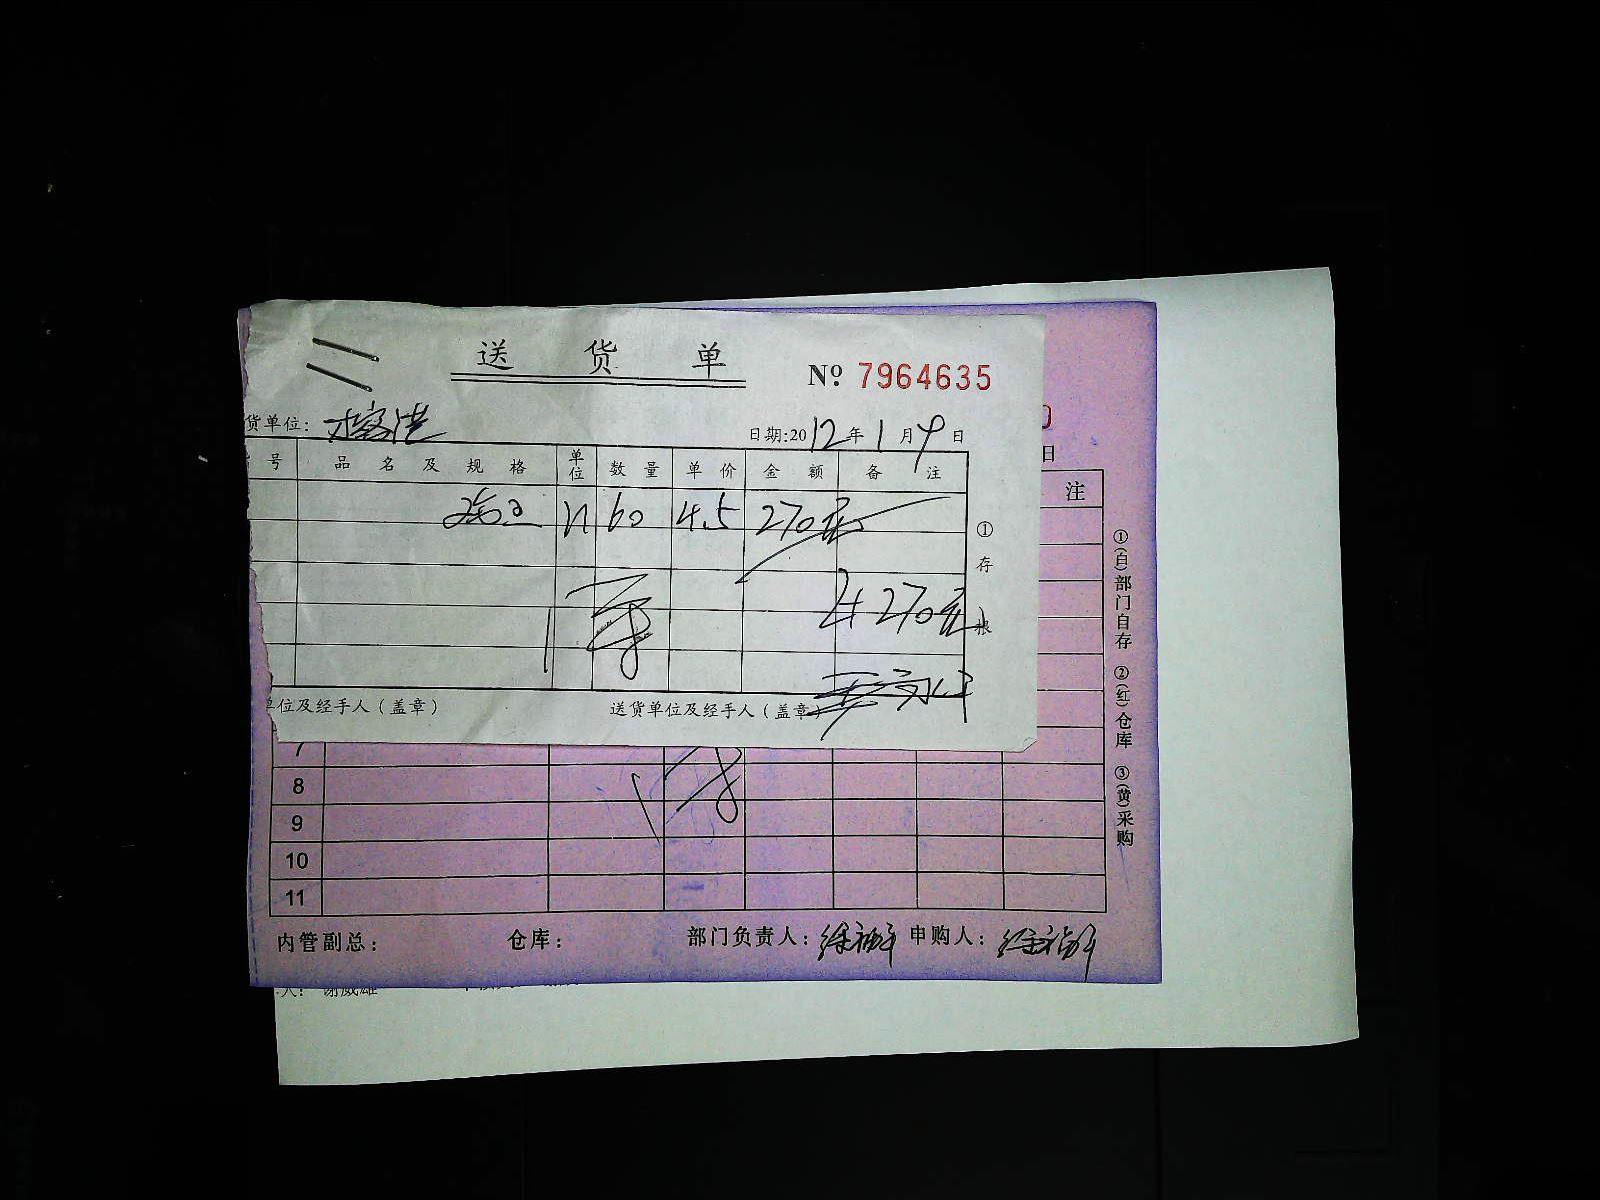 送 货 单
№ 7964635
货单位:
日期:2012年1月9日
号 品 名 及 规 格 单位 数 量 单 价 金 额 备 注
60 4.5 270元
270元
①存根
单位及经手人(盖章) 送货单位及经手人(盖章)
日
注
①(白)部门自存 ②(红)仓库 ③(黄)采购
7
8
9
10
11
内管副总: 仓库: 部门负责人: 申购人:
人: 谢威雄